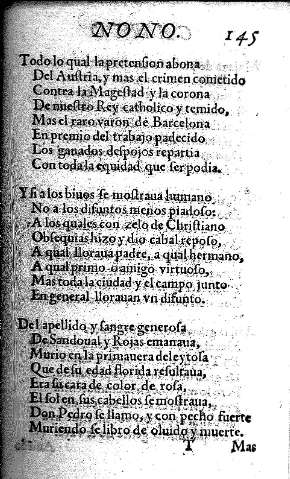 NONO. 145
Todo lo qual la pretension abona
Del Austria, y mas el crimen cometido
Contra la Magestad y la corona
De nuestro Rey catholico y temido,
Mas el raro varon de Barcelona
En premio del trabajo padecido
Los ganados despojos repartia
Con toda la equidad que ser podia.
Y si a los biuos se mostraua humano
No a los difuntos menos piadoso:
A los quales con zelo de Christiano
Obsequias hizo y dio cabal reposo,
A qual lloraua padre, a qual hermano,
A qual primo o amigo virtuoso,
Mas toda la ciudad y el campo junto
En general llorauan vn difunto.
Del apellido y sangre generosa
De Sandoual y Rojas emanaua,
Murio en la primauera deleytosa
Que de su edad florida resultaua,
Era su cara de color de rosa,
El sol en sus cabellos se mostraua,
Don Pedro se llamo, y con pecho fuerte
Muriendo se libro de oluido y muerte.
T Mas